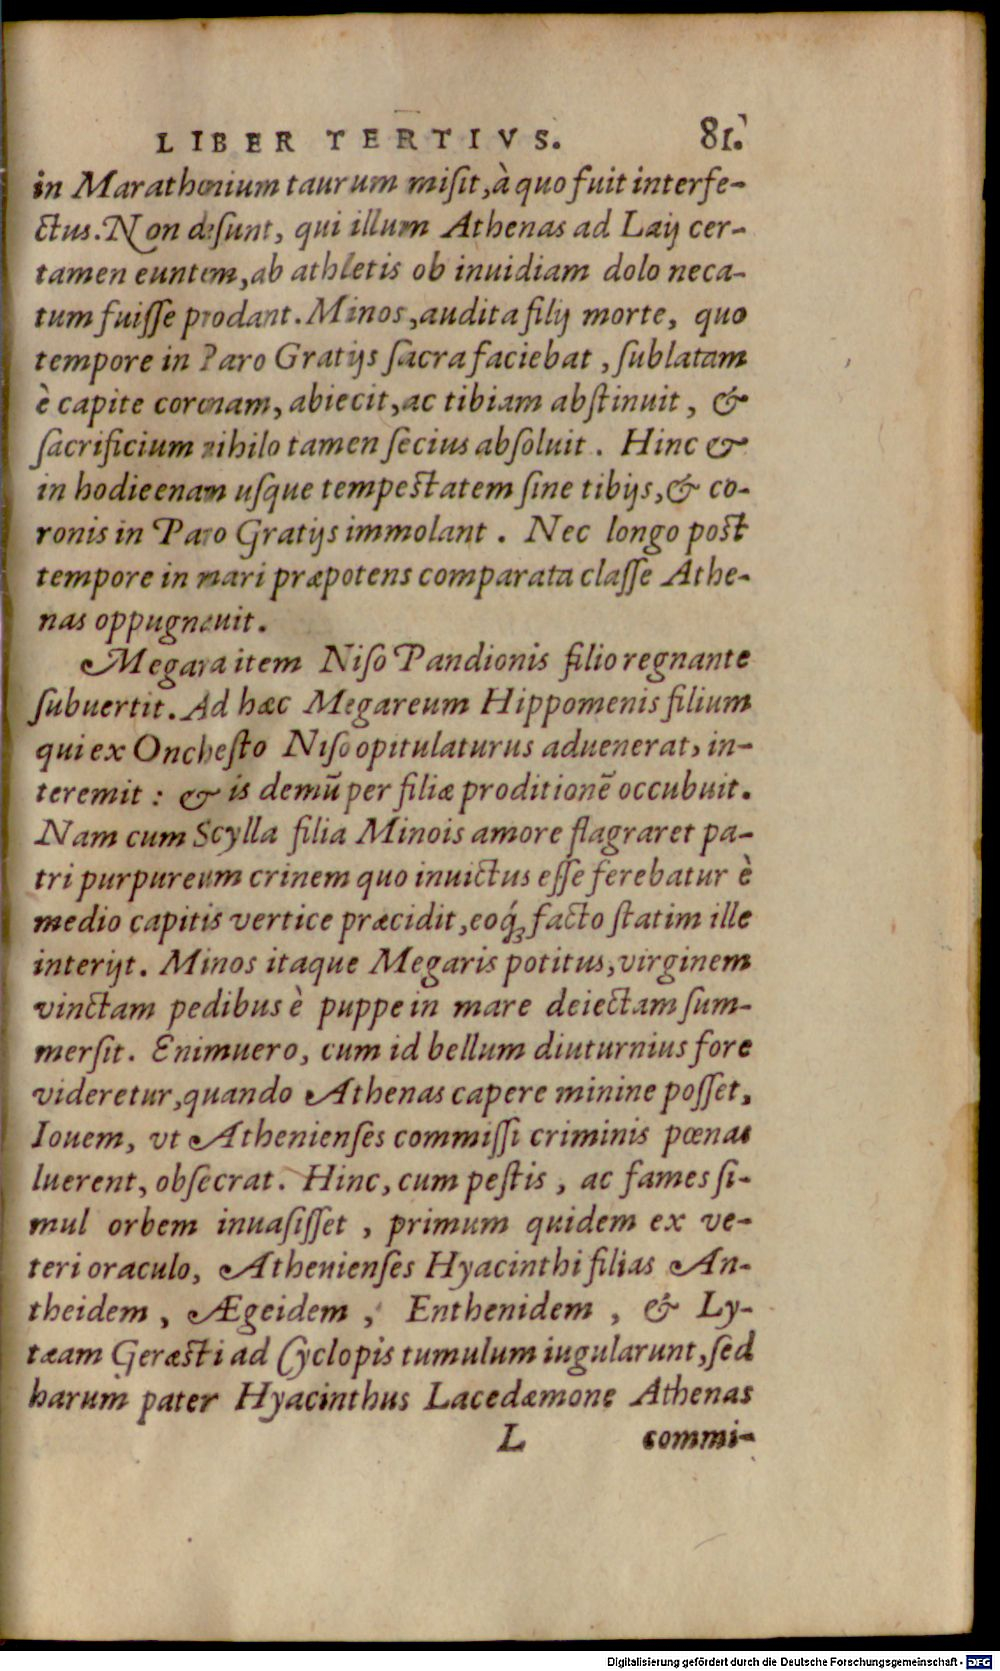 LIBER TERTIVS. 81.
in Marathonium taurum miſit, à quo fuit interfe-
ctus. Non deſunt, qui illum Athenas ad Laij cer-
tamen euntem, ab athletis ob inuidiam dolo neca-
tum fuiſſe prodant. Minos, audita filij morte, quo
tempore in Paro Gratijs ſacra faciebat, ſublatam
è capite coronam, abiecit, ac tibiam abſtinuit, &
ſacrificium nihilo tamen ſecius abſoluit. Hinc &
in hodieenam uſque tempeſtatem ſine tibijs, & co-
ronis in Paro Gratijs immolant. Nec longo poſt
tempore in mari præpotens comparata claſſe Athe-
nas oppugnauit.
Megara item Niſo Pandionis filio regnante
ſubuertit. Ad hæc Megareum Hippomenis filium
qui ex Oncheſto Niſo opitulaturus aduenerat, in-
teremit: & is demũ per filiæ proditionẽ occubuit.
Nam cum Scylla filia Minois amore flagraret pa-
tri purpureum crinem quo inuictus eſſe ferebatur è
medio capitis vertice præcidit, eoq́ꝫ facto ſtatim ille
interijt. Minos itaque Megaris potitus, virginem
vinctam pedibus è puppe in mare deiectam ſum-
merſit. Enimuero, cum id bellum diuturnius fore
videretur, quando Athenas capere minine poſſet,
Iouem, vt Athenienſes commiſſi criminis pœnas
luerent, obſecrat. Hinc, cum peſtis, ac fames ſi-
mul orbem inuaſiſſet, primum quidem ex ve-
teri oraculo, Athenienſes Hyacinthi filias An-
theidem, Ægeidem, Enthenidem, & Ly-
tæam Geræſti ad Cyclopis tumulum iugularunt, ſed
harum pater Hyacinthus Lacedæmone Athenas
L commi-
Digitalisierung gefördert durch die Deutsche Forschungsgemeinschaft - DFG